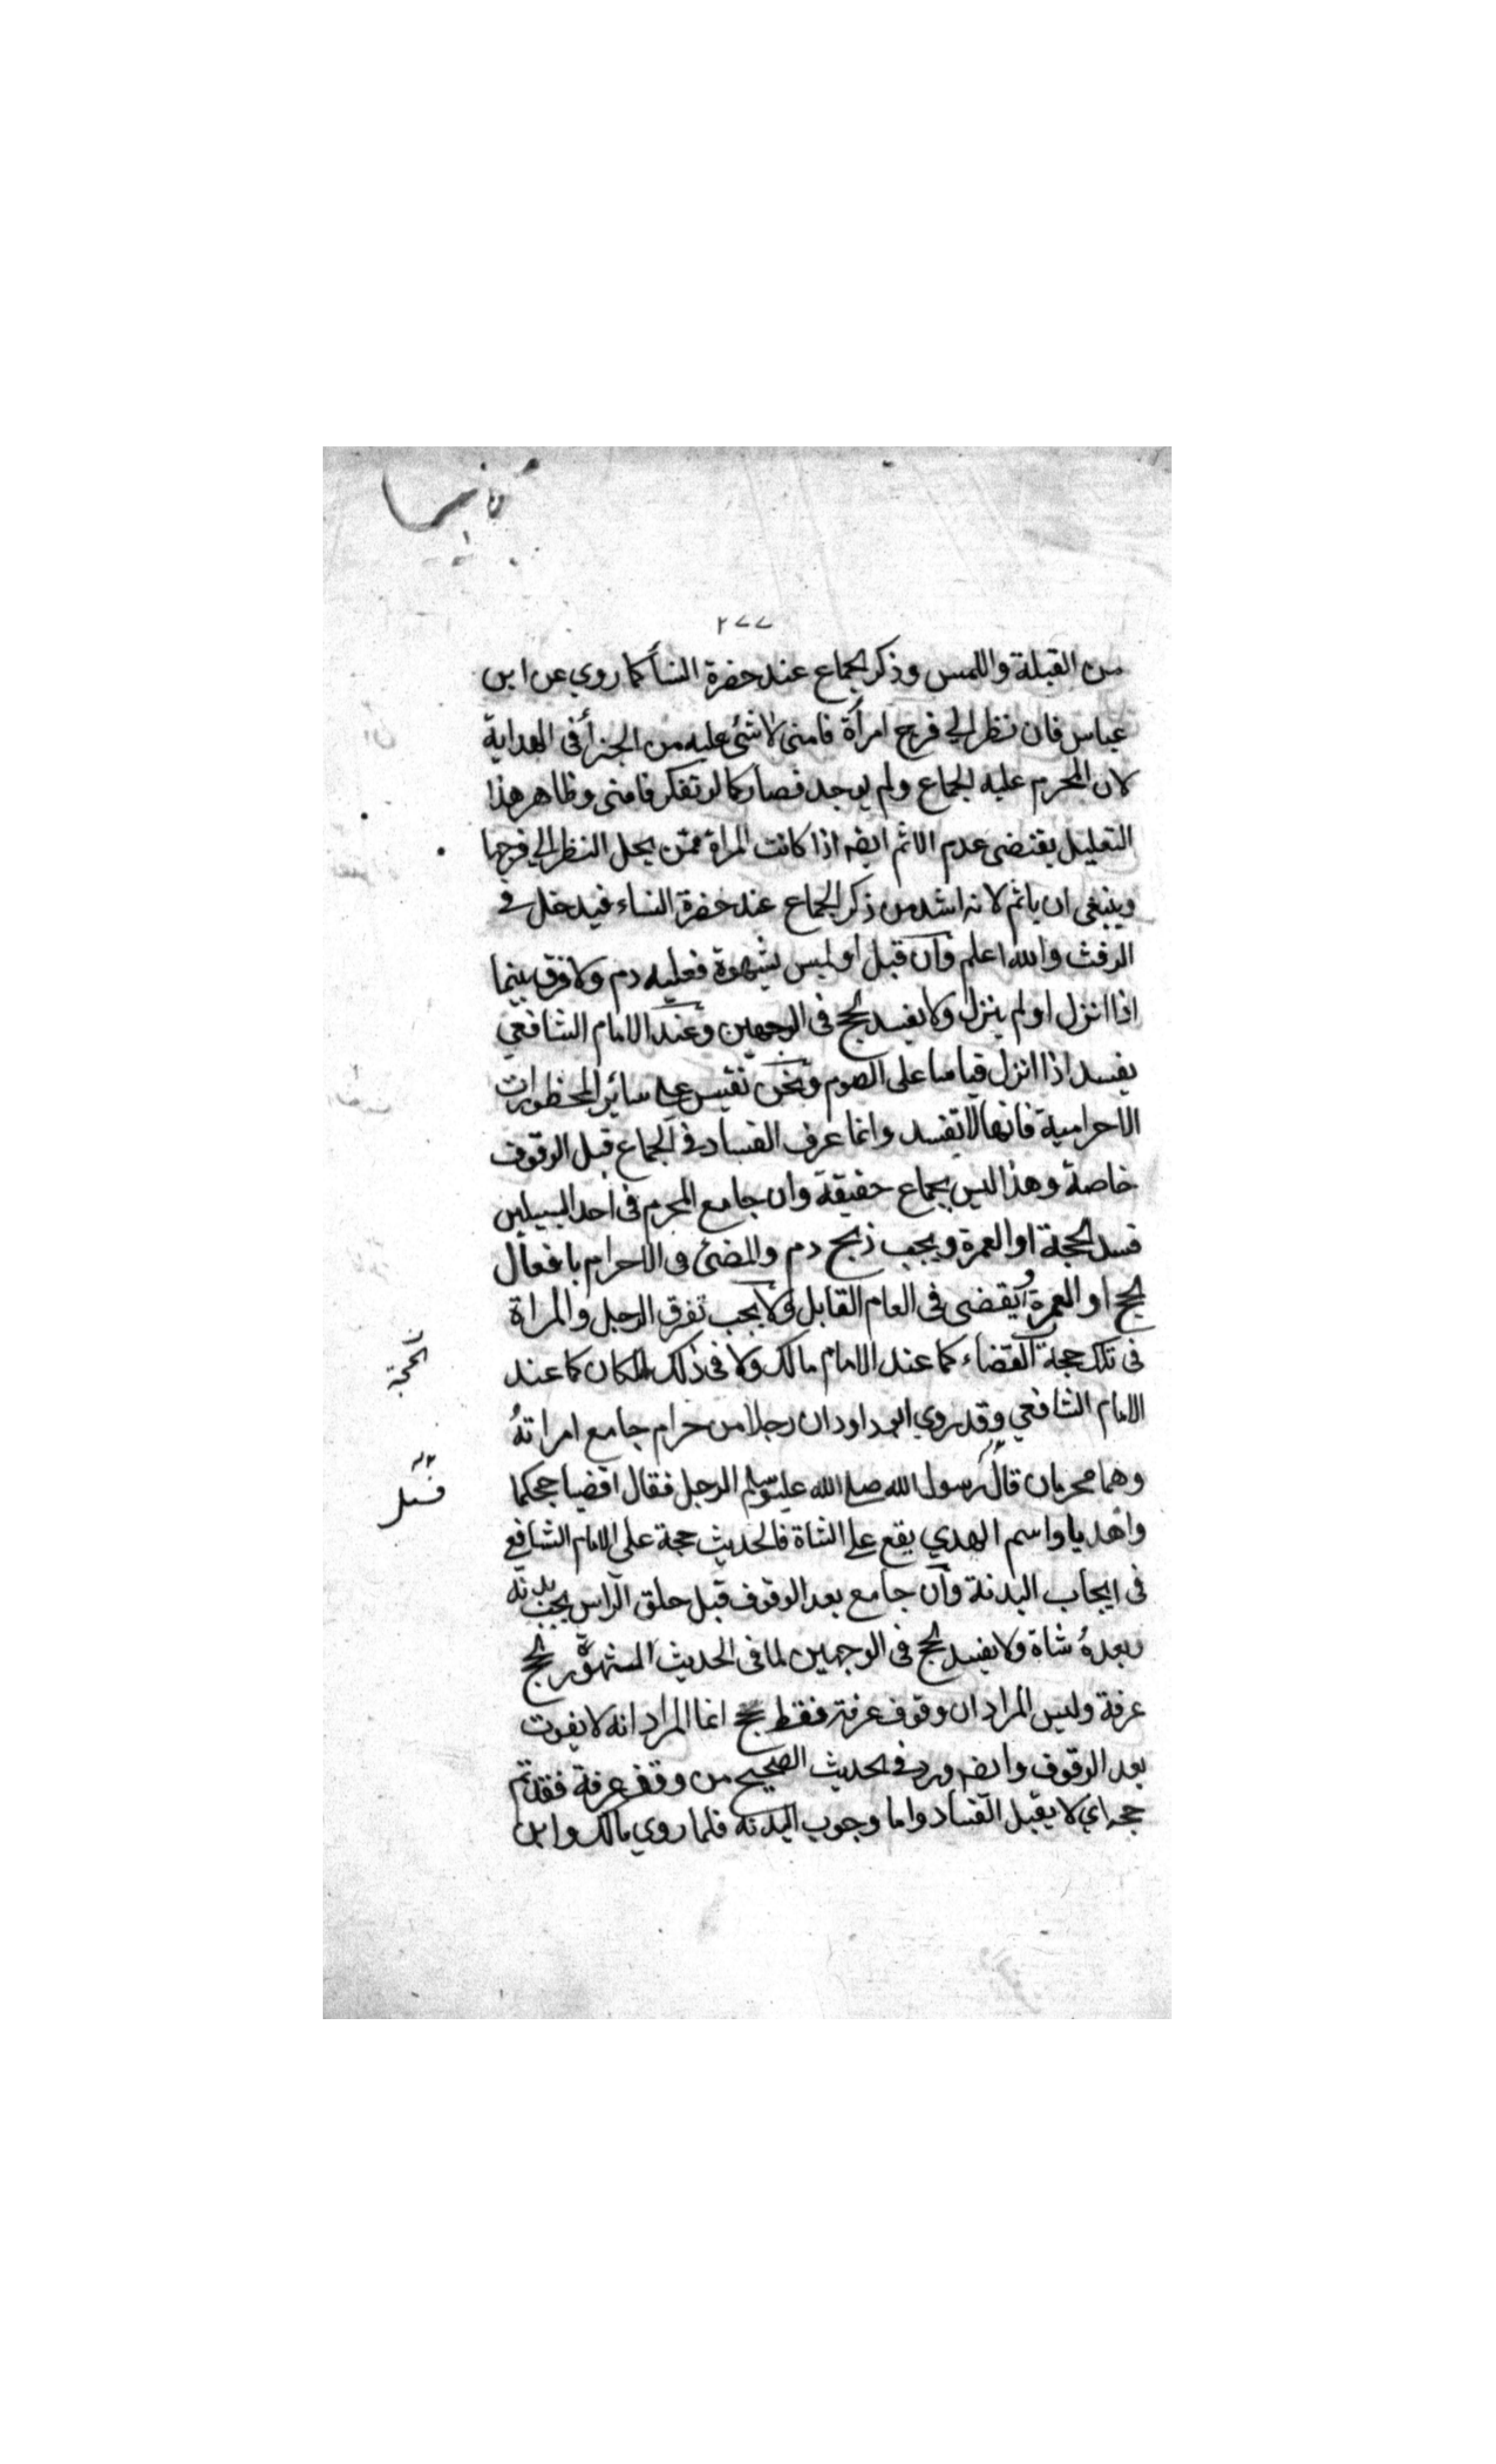 ٢٧٧
من القبلة واللمس وذكر الجماع عند حضرة النسأ كما روي عن ابن
عباس فان نظر الي فرج امرأة فامنى لا شئ عليه من الجزأ فى الهداية
لان المحرم عليه الجماع ولم يوجد فصار كما لو تفكر فامنى وظاهر هذا
التعليل يقتضى عدم الاثم ايضه اذا كانت المراة ممن يحل النظر الي فرجها
وينبغى ان ياثم لانه اشد من ذكر الجماع عند حضرة النساء فيدخل في
الرفث والله اعلم وان قبل او لمس بشهوة فعليه دم ولا فرق بينما
اذا انزل او لم ينزل ولا يفسد الحج فى الوجهين وعند الامام الشافعي
يفسد اذا انزل قياسا على الصوم ونحن نقيس على سائر المحظورات
الاحرامية فانها لا تفسد وانما عرف الفساد في الجماع قبل الوقوف
خاصة وهذا ليس بجماع حقيقة وان جامع المحرم فى احد السبيلين
فسد الحجة او العمرة ويجب ذبح دم والمضئ فى الاحرام بافعال
الحج او العمرة ويقضى فى العام القابل ولا يجب تفرق الرجل والمراة
فى تلك حجة القضاء كما عند الامام مالك ولا فى ذلك المكان كما عند
الحجة
الامام الشافعي وقد روي ابو داود ان رجلا من حرام جامع امراته
وهما محرمان قال رسول الله صلى الله عليه وسلم الرجل فقال اقضيا حجكما
فسئل
واهديا واسم الهدي يقع على الشاة فالحديث حجة على الامام الشافعي
فى ايجاب البدنة وان جامع بعد الوقوف قبل حلق الراس يجب بدنة
وبعده شاة ولا يفسد الحج فى الوجهين لما فى الحديث المشهور الحج
عرفة وليس المراد ان وقوف عرفة فقط حج انما المراد انه لا يفوت
بعد الوقوف وايضه ورد في الحديث الصحيح من وقف عرفة فقد تم
حجه اي لا يقبل الفساد واما وجوب البدنة فلما روي مالك وابن